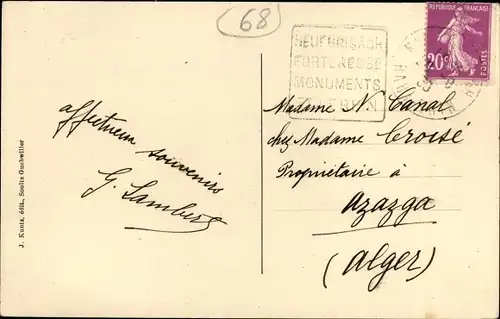 68
REPUBLIQUE FRANÇAISE
20c
POSTES
NEUFBRISACH
FORTERESSE
MONUMENTS
affectueux souvenirs
G. Lamberg
Madame N. Canal
chez Madame Crossé
Propriétaire à
Azazga
(Alger)
J. Kuntz, édit., Soultz Guebwiller